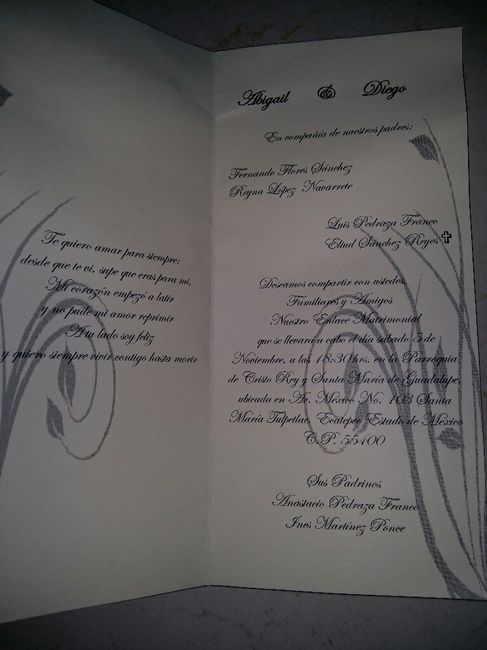 Te quiero amar para siempre:
desde que te vi, supe que eras para mi,
Mi corazón empezó a latir
y no pude mi amor reprimir
A tu lado soy feliz
y quiero siempre vivir contigo hasta morir
Abigail & Diego
En compañía de nuestros padres:
Fernando Flores Sánchez
Reyna López Navarrete
Luis Pedraza Franco
Eliud Sánchez Reyes ✝
Deseamos compartir con ustedes,
Familiares y Amigos
Nuestro Enlace Matrimonial
que se llevara a cabo el día sábado 5 de
Noviembre, a las 18:30hrs. en la Parroquia
de Cristo Rey y Santa María de Guadalupe,
ubicada en Av. México No. 103 Santa
María Tulpetlac, Ecatepec Estado de México
C.P. 55400
Sus Padrinos
Anastacio Pedraza Franco
Ines Martínez Ponce